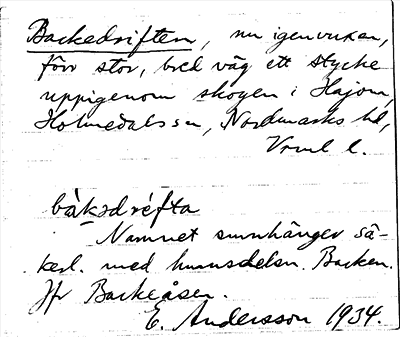 Backedriften, nu igenvuxen,
förr stor, bred väg ett stycke
uppigenom skogen i Hajom,
Holmedals sn, Nordmarks hd,
Vrml l.
bàkədréfta
Namnet sammhänger sä-
kerl. med hmansdelen. Backen.
Jfr Backeåsen.
E. Andersson 1934.